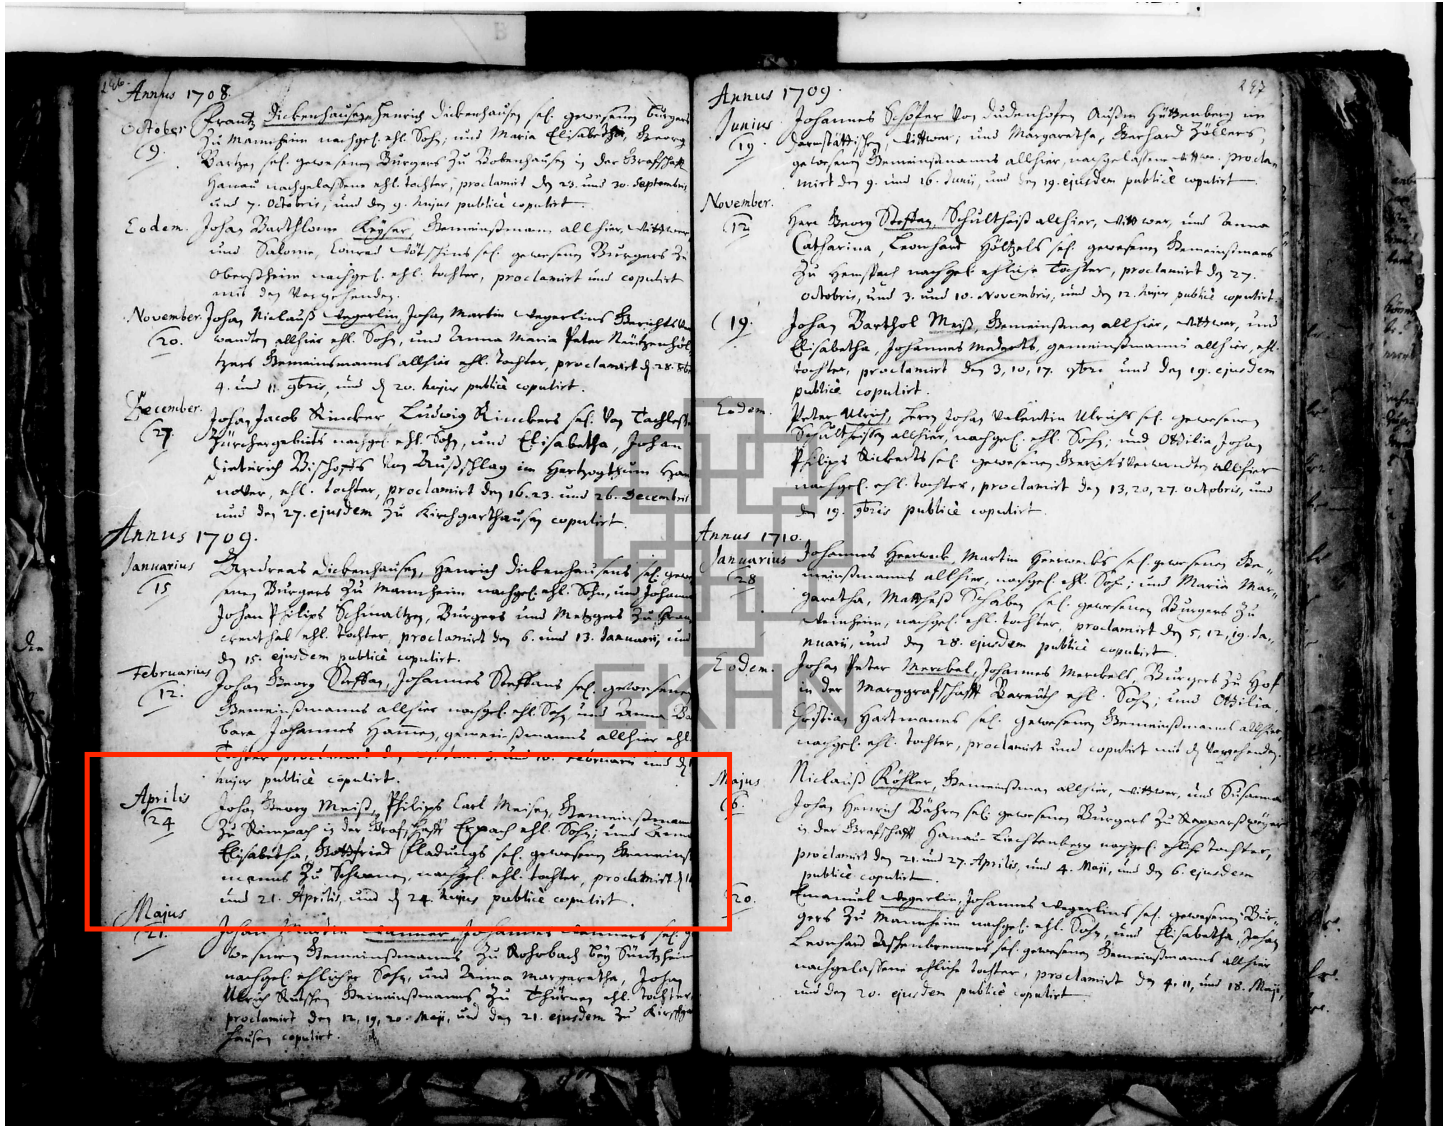 246.
Annus 1708.
October Frantz Dickenhausen, Henrich Dickenhausen sel. gewesenen burgers
(9. Zu Mannheim nachgel. ehl. Sohn, und Maria Elisabetha, Georg
sel. gewesenen Burgers Zu Babenhausen in der Grafschafft
Hanau nachgelassene ehl. tochter, proclamirt den 23. und 30. Septembris
und 7. Octobris, und den 9. hujus publicè copulirt.
Eodem. Johan Barthlome Keyser, Gemeinßmann allhier, Wittwer,
und Salome, Conrad sel. gewesenen Burgers Zu
copulirt
mit den Vorgehenden.
November. Johan Niclauß Wegerlin, Johan Martin Wegerlins Gerichtsver
(20. wandten allhier ehl. Sohn, und Anna Maria Peter
Gemeinsmanns allhier ehl. tochter, proclamirt den 28.
4. und 11. 9bris, und den 20. hujus publicè copulirt.
December. Johan Jacob Rincker Ludwig Rinckers sel. von
(27. Zürchergebiets nachgel. ehl. Sohn, und Elisabetha, Johan
Dieterich Bischoffs von im Hertzogthum Han
nover, ehl. tochter, proclamirt den 16. 23. und 26. Decembris
und den 27. ejusdem Zu Kirchgarthausen copulirt.
Annus 1709.
Januarius Andreas Dickenhausen, Henrich Dickenhausens sel. gewe
(15 senen Burgers Zu Mannheim nachgel. ehl. Sohn, und Johanna
Johan Philips Schmaltzen, Burgers und Metzgers Zu
ehl. tochter, proclamirt den 6. und 13. Januarii, und
den 15. ejusdem publicè copulirt.
Februarius Johan Georg Steffan, Johannes Steffans sel. gewesenen
(12. Gemeinßmanns allhier nachgel. ehl. Sohn, und Anna Ba
bara Johannes Hammen, gemeinßmanns allhier ehl.
Tochter proclamirt den 3. und 10. Februarii und den
hujus publicè copulirt.
Aprilis Johan Georg Meiß, Philips Carl Meisen, Gemeinßmann
(24 Zu Rimpach in der Grafschafft Erpach ehl. Sohn; und Anna
Elisabetha, Gottfried Fladungs sel. gewesenen Gemeins
manns Zu nachgel. ehl. tochter, proclamirt den 14
und 21. Aprilis, und den 24. hujus publicè copulirt.
Majus
(21. Johan sel. ge
wesenen Gemeinßmanns Zu Rohrbach bey Sintzheim
nachgel. ehlicher Sohn, und Anna Margaretha, Johan
Ulrich Gemeinßmanns Zu ehl. tochter
proclamirt den 12, 19, 20. Maji, und den 21. ejusdem Zu Kirchgart
hausen copulirt.
247
Annus 1709.
Junius Johannes Schäfer von Dudenhofen Hüttenberg im
(19. Darmstättischen, Wittwer; und Margaretha, Gerhard Zöllers,
gewesenen Gemeinßmanns allhier, nachgelassene Wittwe. procla
mirt den 9. und 16. Junii, und den 19. ejusdem publicè copulirt.
November. Herr Georg Steffan, Schultheiß allhier, Wittwer, und Anna
(12 Catharina, Leonhard Höltzels sel. gewesenen Gemeinßmans
Zu Hemspach nachgel. ehliche Tochter, proclamirt den 27.
Octobris, und 3. und 10. Novembris, und den 12. hujus publicè copulirt.
(19. Johan Barthol Meiß, Gemeinßman allhier, Wittwer, und
Elisabetha, Johannes gemeinßmanns allhier, ehl.
tochter, proclamirt den 3, 10, 17. 9bris und den 19. ejusdem
publicè copulirt.
Eodem. Peter Ulrich, Herrn Johan Valentin Ulrichs sel. gewesenen
Schultheisen allhier, nachgel. ehl. Sohn; und Ottilia, Johan
Philips Rickerts sel. gewesenen Gerichtsverwandten allhier
nachgel. ehl. tochter, proclamirt den 13, 20, 27. Octobris, und
den 19. 9bris publicè copulirt.
Annus 1710.
Januarius Johannes Heerweck, Martin Heerwecks sel. gewesenen Ge-
(28 meinßmanns allhier, nachgel. ehl. Sohn; und Maria Mar-
garetha, Mattheß sel. gewesenen Burgers Zu
Weinheim, nachgel. ehl. tochter, proclamirt den 5, 12, 19. Ja-
nuarii, und den 28. ejusdem publicè copulirt.
Eodem. Johan Peter Merckel, Johannes Merckels, Burgers Zu Hof
in der Marggrafschafft Bareuth ehl. Sohn; und Ottilia,
Christian Hartmanns sel. gewesenen Gemeinßmanns allhier
nachgel. ehl. tochter, proclamirt und copulirt mit den Vorgehenden.
Majus Niclauß Köhler, Gemeinßman allhier, Wittwer, und Susanna
(6. Johan Henrich sel. gewesenen Burgers Zu
in der Grafschafft Hanau-Liechtenberg nachgel. ehliche tochter,
proclamirt den 21. und 27. Aprilis, und 4. Maji, und den 6. ejusdem
publicè copulirt.
(20. Emanuel Wegerlin, Johannes Wegerlins sel. gewesenen Bur-
gers Zu Mannheim nachgel. ehl. Sohn, und Elisabetha, Johan
Leonhard Aschenbrenners sel. gewesenen Gemeinßmanns allhier
nachgelassene ehliche tochter, proclamirt den 4. 11, und 18. Maji,
und den 20. ejusdem publicè copulirt.
EKHN